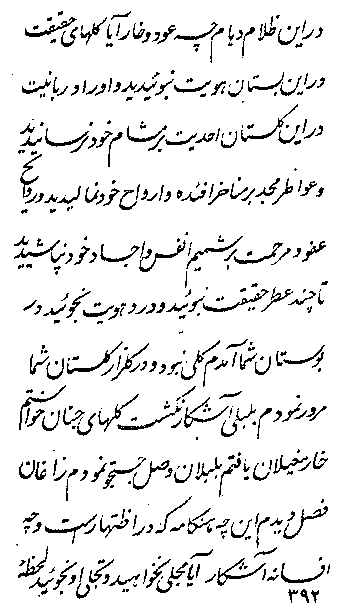 در این ظلام دیدم چه عود و خار آیا گلهای حقیقت
در این بستان هویت نبوئیدید و اوراد ربانیت
در این گلستان احدیت بر مشام خود نرسانیدید
و عواطر مجد بر مناخر افئده و ارواح خود نمالیدید و روایح
عفو و مرحمت بر شمیم انفس و اجساد خود نپاشیدید
تا چند عطر حقیقت نبوئید و درد هویت نجوئید در
بوستان شما آمدم گلی نبود و در گلزار گلستان شما
مرور نمودم بلبلی آشکار نگشت گلهای جنان خواستم
خار مغیلان یافتم بلبلان وصل جستجو نمودم زاغان
فصل دیدم این چه هنگامه که در اظهار است و چه
افسانه آشکار آیا مجلی نخواهید و تجلی او نجوئید لحظهٔ
۳۹۲